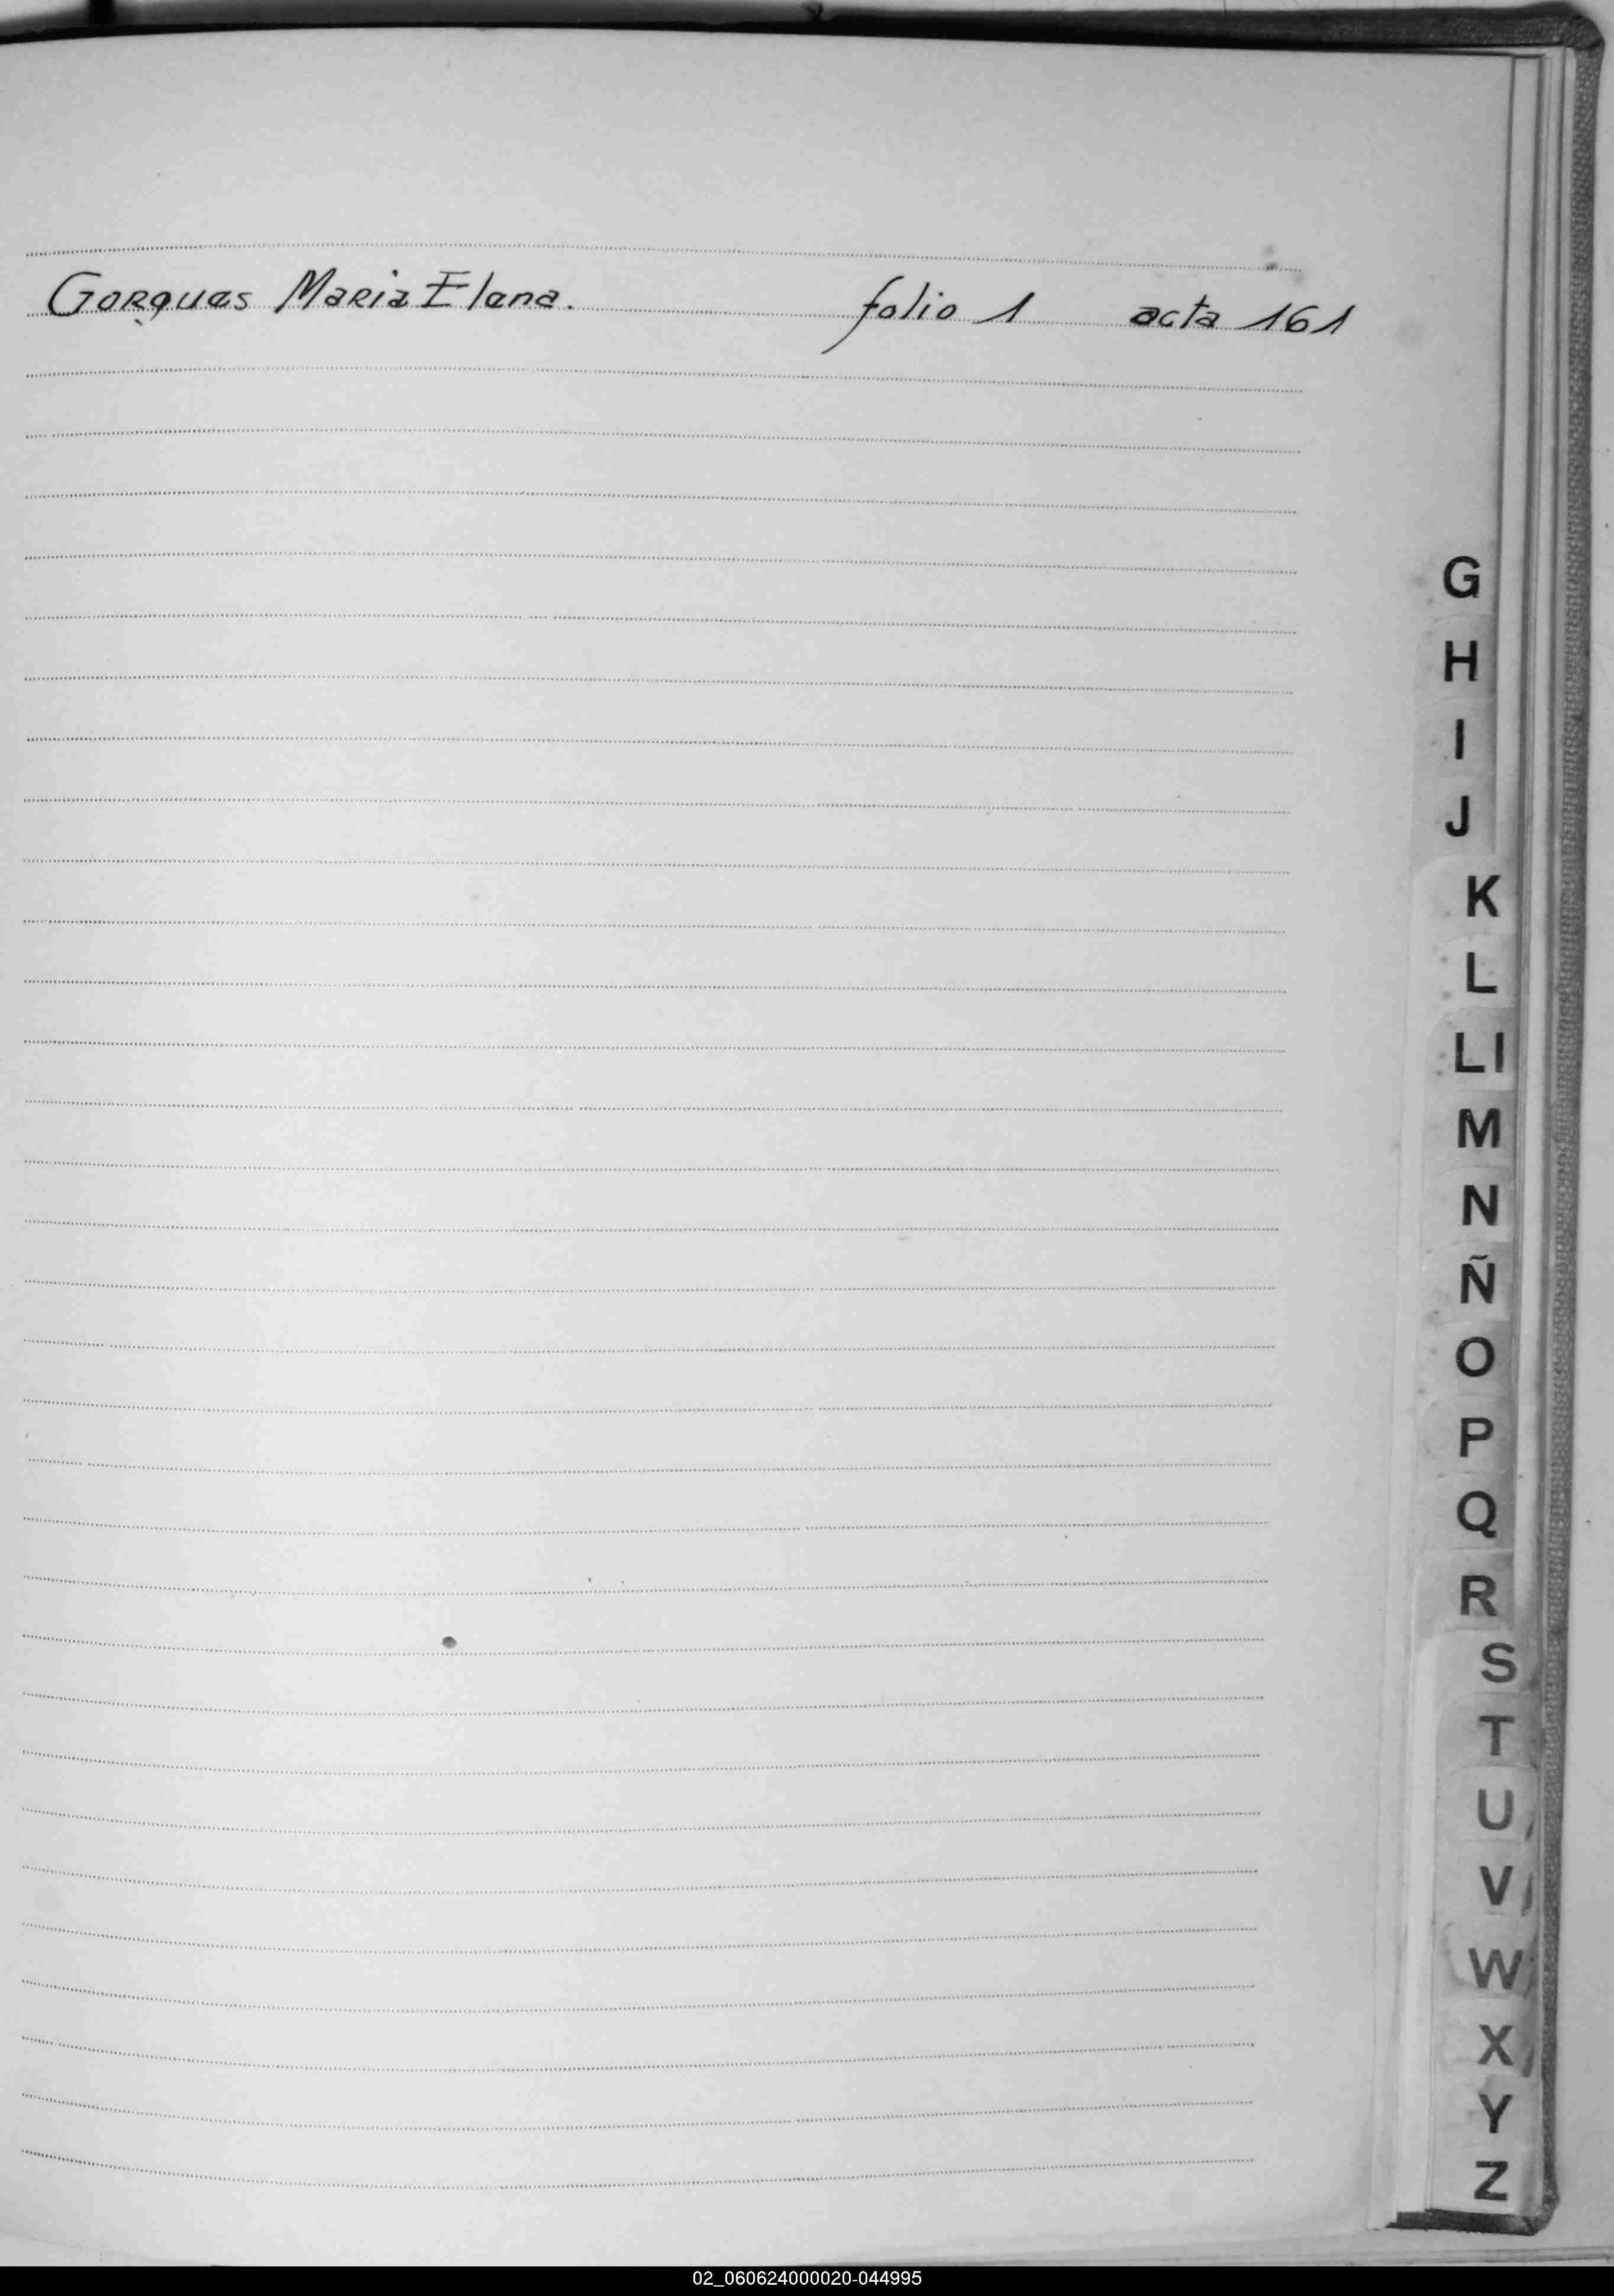 Gorques Maria Elena. folio 1 acta 161
G
H
I
J
K
L
Ll
M
N
Ñ
O
P
Q
R
S
T
U
V
W
X
Y
Z
02_060624000020-044995